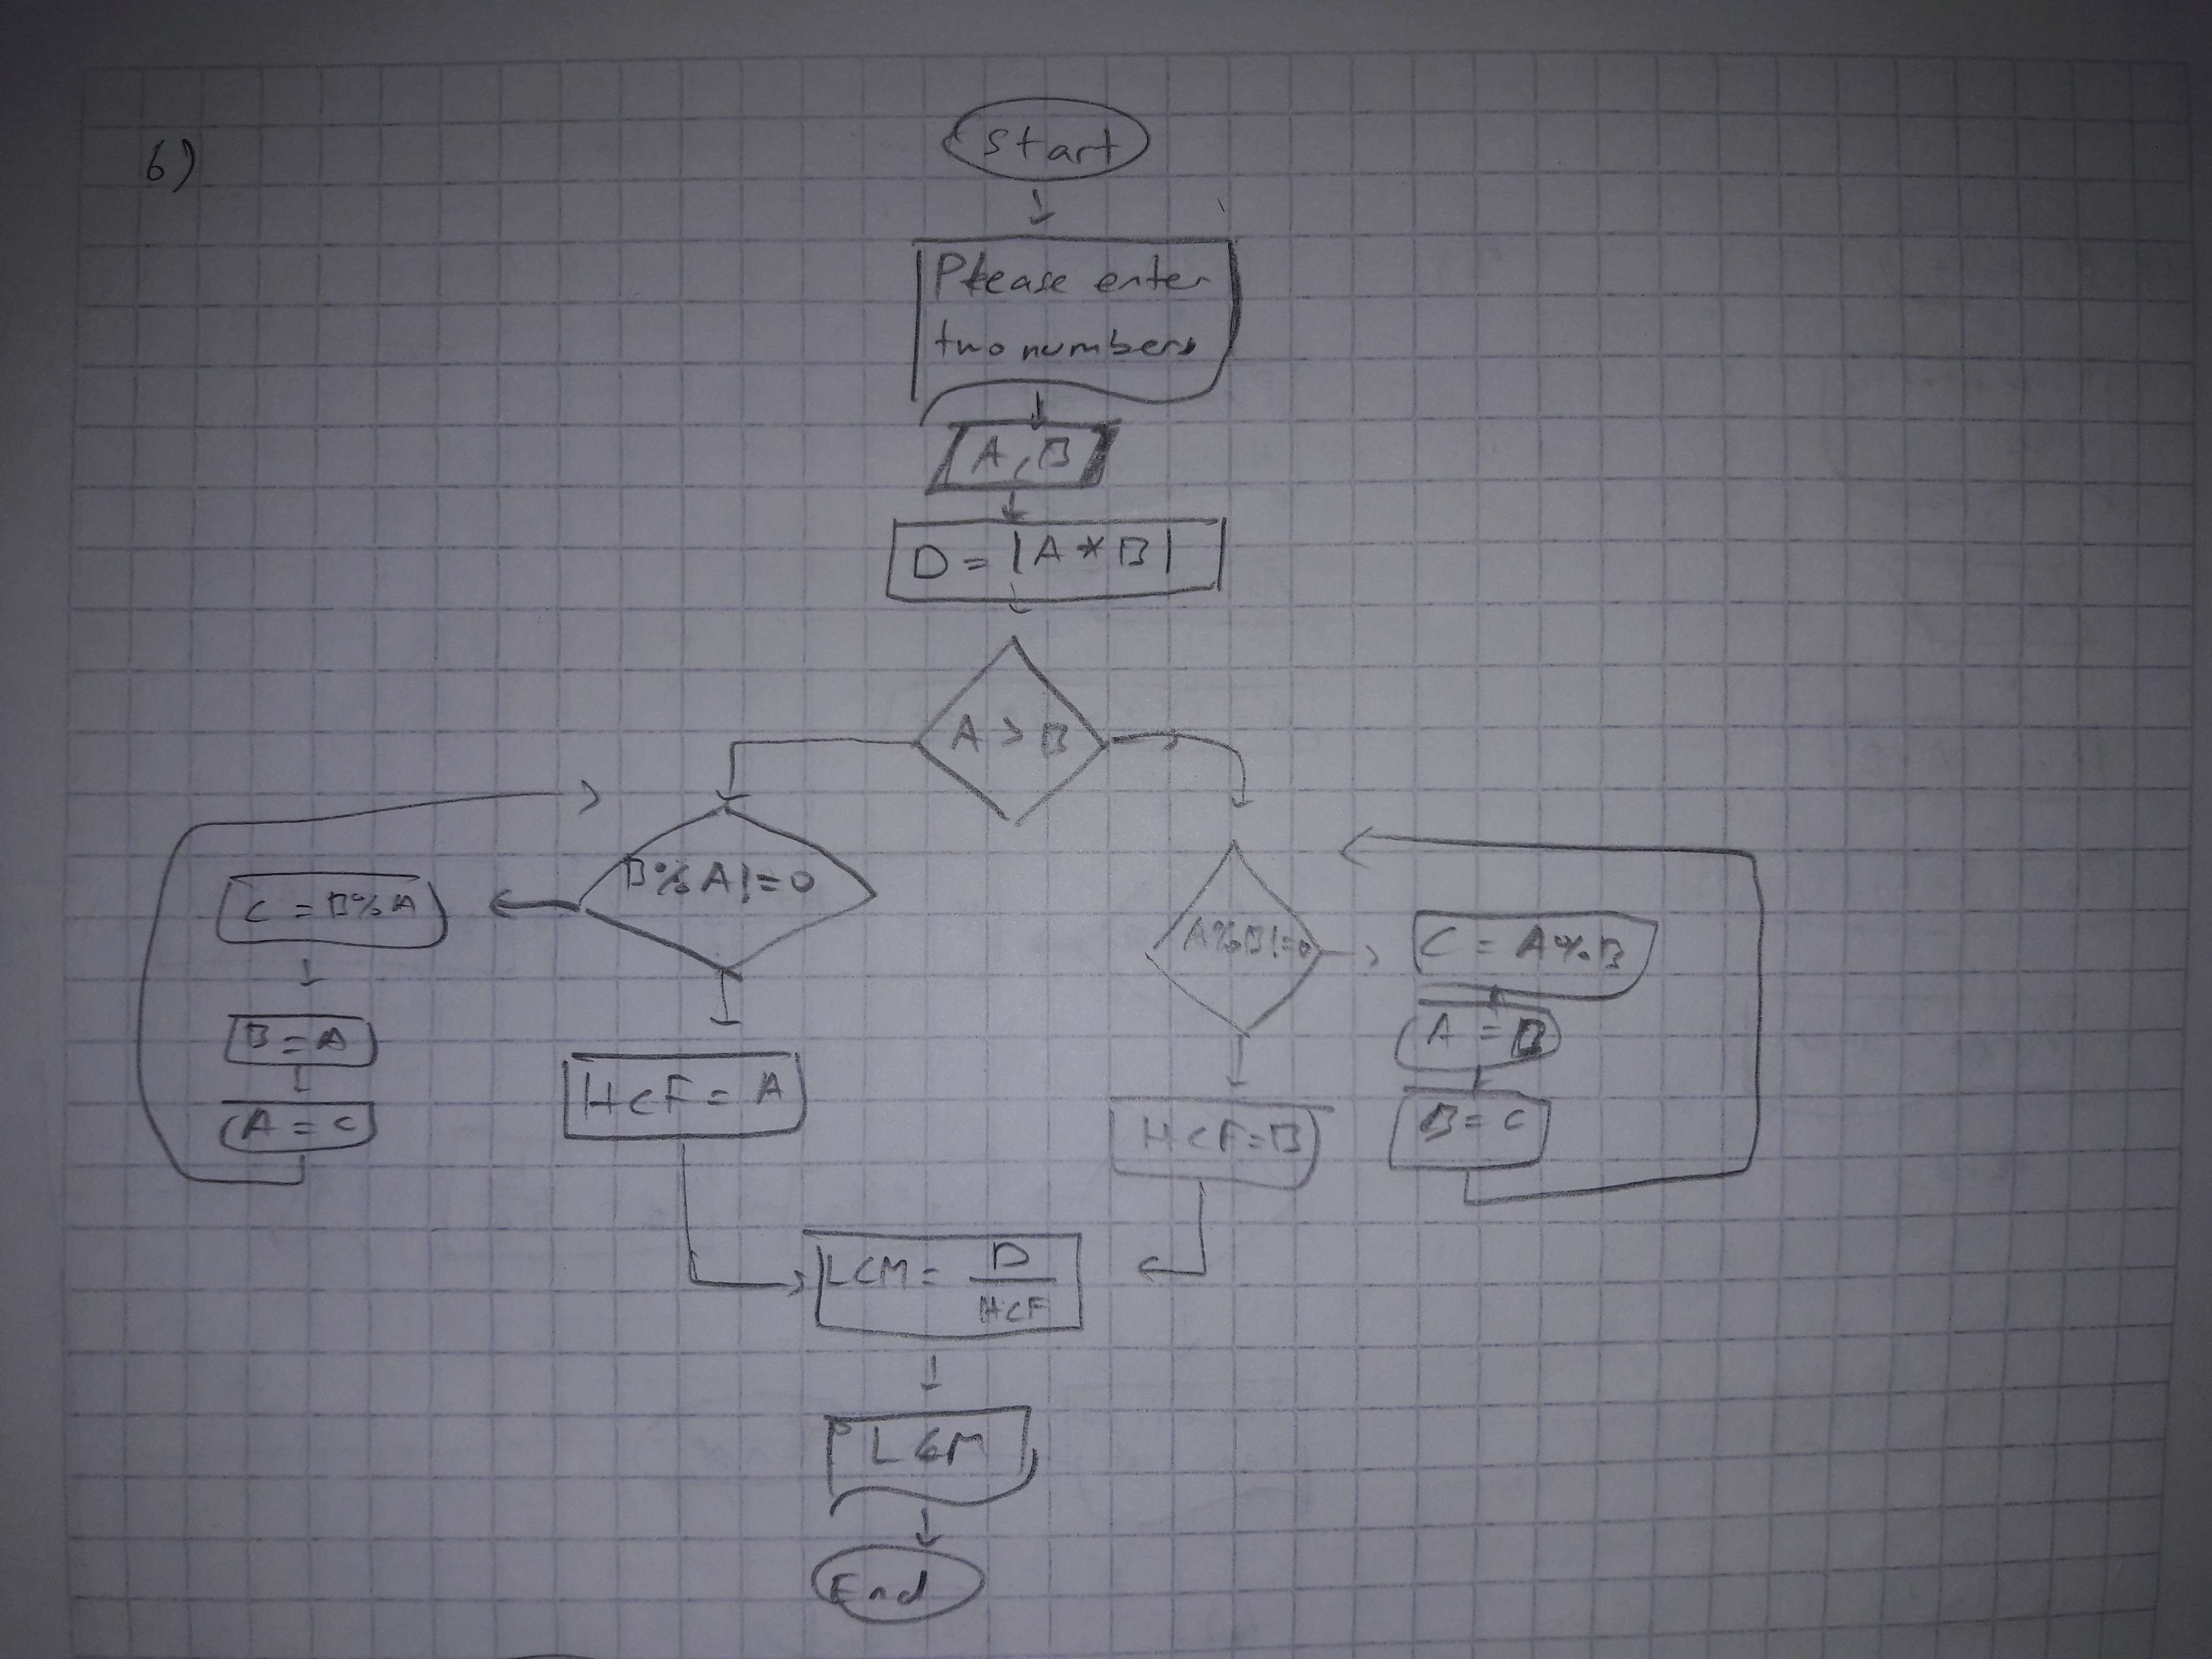 6)
Start
Please enter
two numbers
A, B
D = |A * B|
A > B
B%A!=0
C = B%A
B = A
A = C
HCF = A
A%B!=0
C = A%B
A = B
B = C
HCF=B
LCM = D
HCF
LCM
End